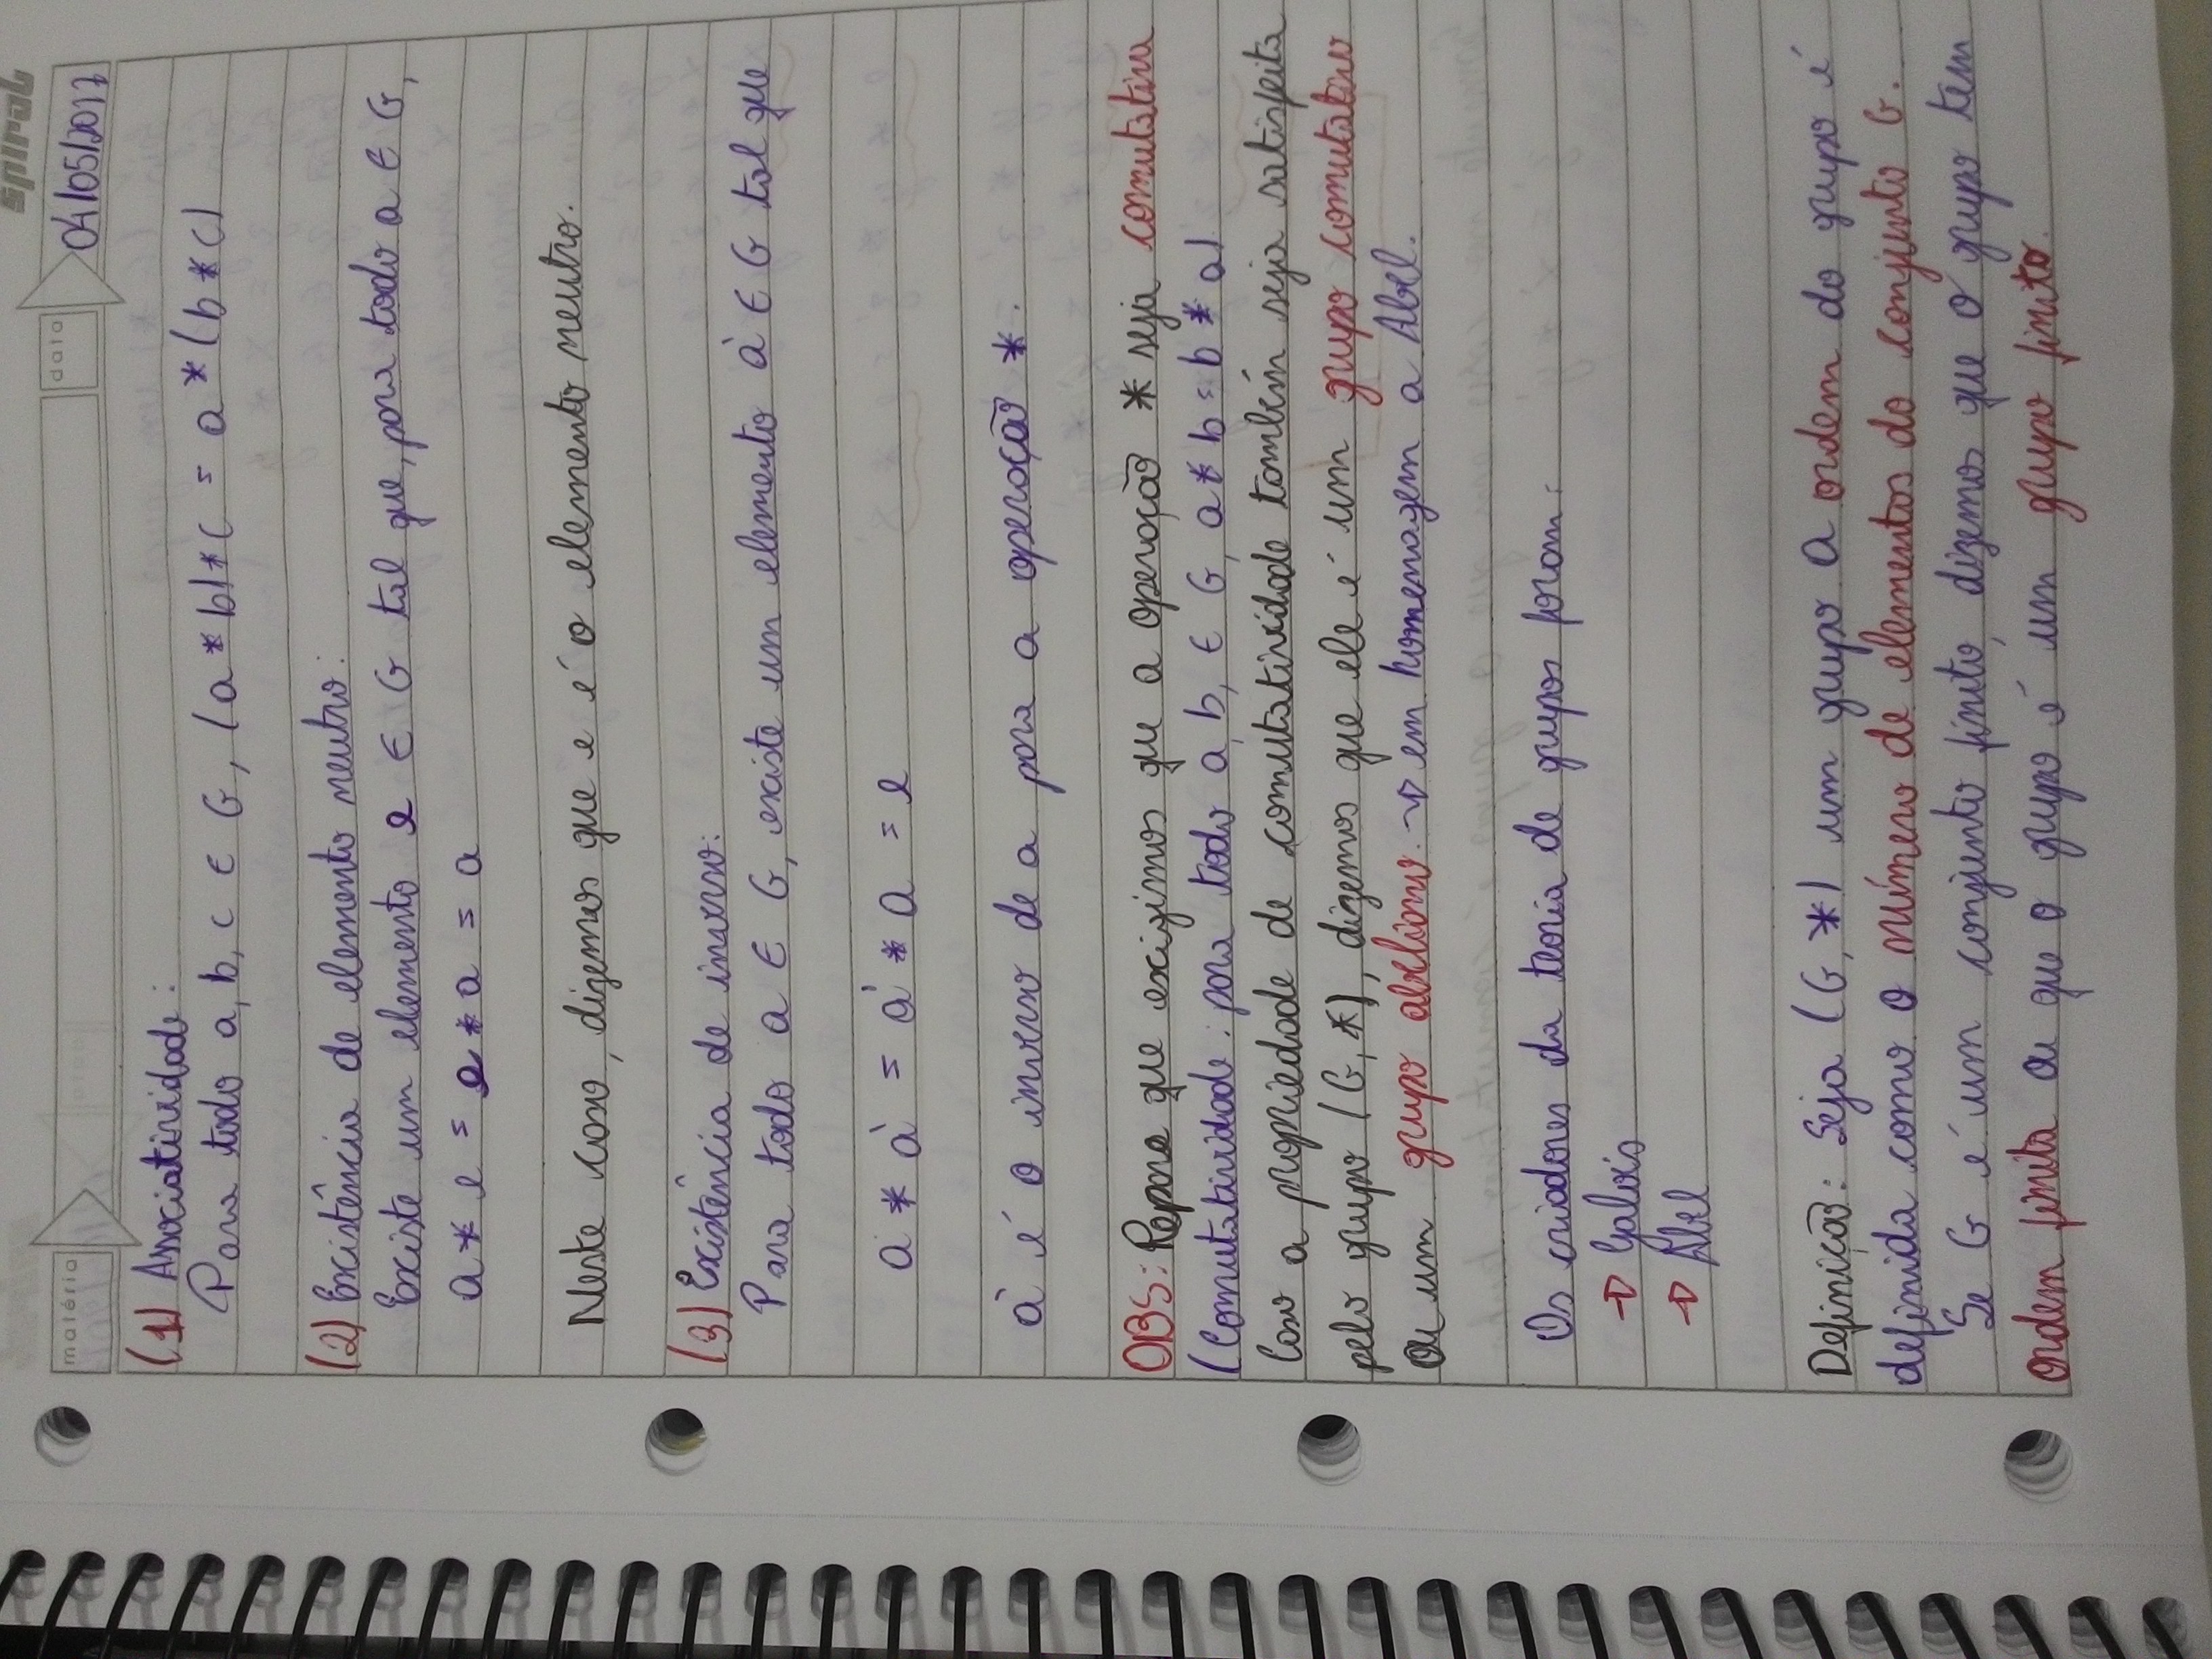 spiral
matéria
data
04/05/2017
(1) Associatividade:
Para todo a, b, c ∈ G, (a * b) * c = a * (b * c)
(2) Existência de elemento neutro:
Existe um elemento e ∈ G tal que, para todo a ∈ G,
a * e = e * a = a
Neste caso, dizemos que e é o elemento neutro.
(3) Existência de inverso:
Para todo a ∈ G, existe um elemento a' ∈ G tal que
a * a' = a' * a = e
a' é o inverso de a para a operação *.
OBS: Repare que exigimos que a operação * seja comutativa
(Comutatividade: para todo a, b, ∈ G, a * b = b * a)
Caso a propriedade de comutatividade também seja satisfeita
pelo grupo (G, *), dizemos que ele é um grupo comutativo
ou um grupo abeliano. → em homenagem a Abel.
Os criadores da teoria de grupos foram:
→ Galois
→ Abel
Definição: Seja (G, *) um grupo a ordem do grupo é
definida como o número de elementos do conjunto G.
Se G é um conjunto finito, dizemos que o grupo tem
ordem finita ou que o grupo é um grupo finito.